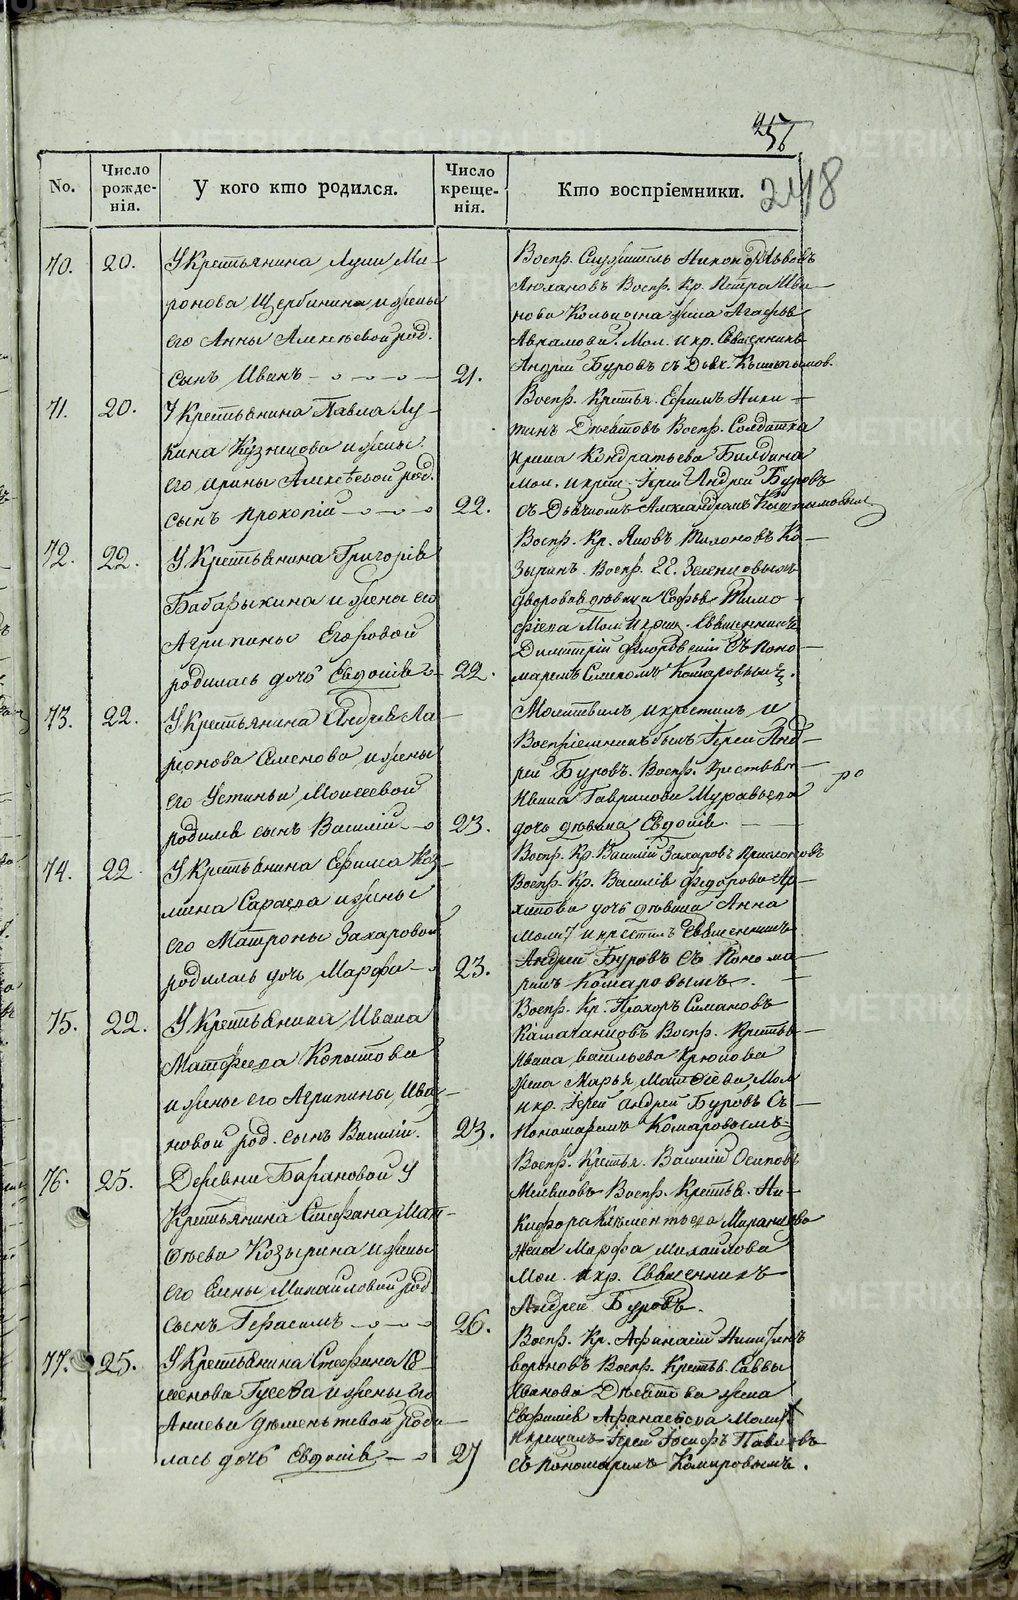 256
2418
No.
Число рожде-нія.
У кого кто родился.
Число креще-нія.
Кто воспріемники.
70. 20.
У Крестьянина Луки Ми-
ронова Щербинина и жены
его Анны Алексѣевой род.
сынъ Иванъ
21.
Воспр. Служитель Никонъ Львовъ
Воспр. Кр. Петра Ива-
нова жена Агафья
Аврамова. Мол. и кр. Священникъ
Андрей Буровъ съ Дьяч. Кыштымов.
71. 20.
У Крестьянина Павла Лу-
кина Кузнецова и жены
его Ирины Алексѣевой род.
сынъ Прокопій
22.
Воспр. Крестья. Ефимъ Ники-
тинъ Девятовъ Воспр. Солдатка
Ирина Кондратьева Балдина
Мол. и крест. Іерей Андрей Буровъ
съ Дьячкомъ Александромъ Кыштымовым
72. 22.
У Крестьянина Григорія
Бабарыкина и жены его
Агрипины Егоровой
родилась дочь Евдокія
22.
Воспр. Кр. Яковъ Тихоновъ Ко-
зыринъ. Воспр. Г.Г. Зеленцовыхъ
дворовая дѣвица Софья Тимо-
фѣева Мол. и крест. Священникъ
Димитрій Флоровскій Съ Поно-
маремъ Комаровымъ.
73. 22.
У Крестьянина Андрея Ла-
ріонова Семенова и жены
его Устиньи Моисеевой
родился сынъ Василій
23.
Молитвилъ и крестилъ и
Воспріемникъ былъ Іерей Анд-
рей Буровъ. Воспр. Крестьян-
Ивана Гаврилова Муравьева
дочь дѣвица Евдокія.
74. 22.
У Крестьянина Ефима Коз-
мина Сараева и жены
его Матроны Захаровой
родилась дочь Марфа
23.
Воспр. Кр. Василій Захаровъ
Воспр. Кр. Василія Федорова Ар-
хипова дочь дѣвица Анна
Молит и крестилъ Священникъ
Андрей Буровъ Съ Понома-
ремъ Комаровымъ.
75. 22.
У Крестьянина Ивана
Матфеева Копытова
и жены его Агрипины Ива-
новой род. сынъ Василій.
23.
Воспр. Кр. Прохоръ Симановъ
Воспр. Крестья-
Ивана Васильева Крюкова
жена Марья Матфѣева Мол
и кр. Іерей Андрей Буровъ Съ
Пономаремъ Комаровымъ
76. 25.
Деревни Барановой У
Крестьянина Стефана Мат-
фѣева Козырина и жены
его Елены Михайловой род.
сынъ Герасимъ
26.
Воспр. Крестья. Василій Осиповъ
Воспр. Крестья. Ни-
кифора Клементьева
жена Марфа Михайлова
Мол. и кр. Священникъ
Андрей Буровъ.
77. 25.
У Крестьянина Стефана Се-
менова Гусева и жены его
Анисьи Дементьевой роди-
лась дочь Евдокія
27
Воспр. Кр. Афанасій Никитинъ
Вороновъ Воспр. Крестья. Саввы
Иванова Девятова жена
Евфимія Афанасьева Молит
и крещалъ Іерей Іосифъ Павловъ
съ Пономаремъ Комаровымъ.
METRIKI.GASO-URAL.RU